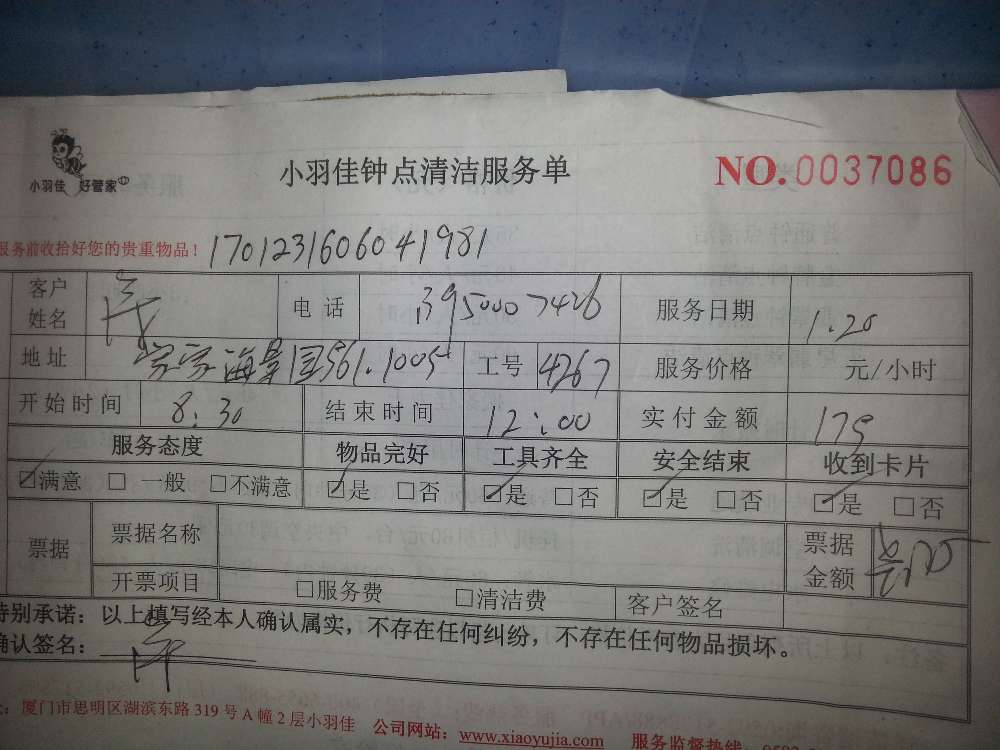 小羽佳 好管家
小羽佳钟点清洁服务单 NO.0037086
服务前收拾好您的贵重物品！ 1701231606041981
客户姓名 电话 13950007426 服务日期 1.20
地址 海景园561.1005 工号 4267 服务价格 元/小时
开始时间 8:30 结束时间 12:00 实付金额 175
服务态度 物品完好 工具齐全 安全结束 收到卡片
☑满意 □一般 □不满意 ☑是 □否 ☑是 □否 ☑是 □否 ☑是 □否
票据 票据名称 票据金额
开票项目 □服务费 □清洁费 客户签名
特别承诺：以上填写经本人确认属实，不存在任何纠纷，不存在任何物品损坏。
确认签名：
厦门市思明区湖滨东路319号A幢2层小羽佳 公司网站：www.xiaoyujia.com 服务监督热线：